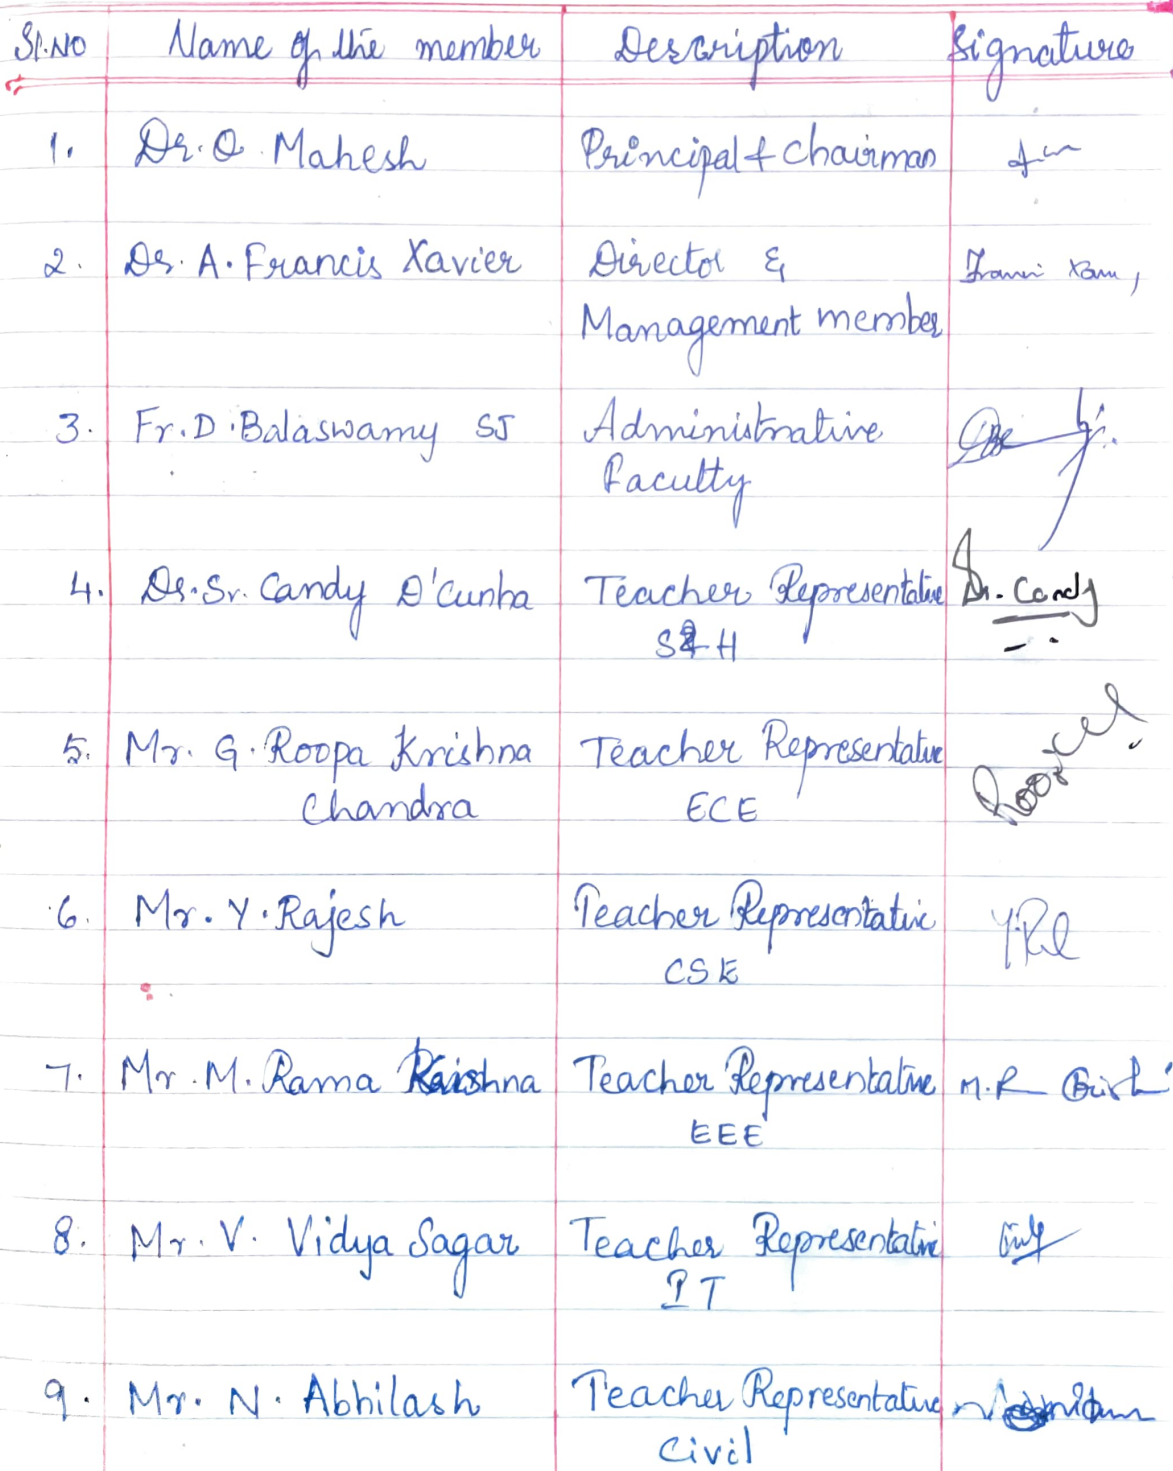 Sl.NO Name of the member Description Signature
1. Dr. O. Mahesh Principal & Chairman
2. Dr. A. Francis Xavier Director &
Management member
3. Fr. D. Balaswamy SJ Administrative
Faculty
4. Dr. Sr. Candy D'Cunha Teacher Representative Dr. Candy
S & H
5. Mr. G. Roopa Krishna Teacher Representative
Chandra ECE
6. Mr. Y. Rajesh Teacher Representative
CSE
7. Mr. M. Rama Krishna Teacher Representative M.R
EEE
8. Mr. V. Vidya Sagar Teacher Representative
IT
9. Mr. N. Abhilash Teacher Representative
Civil